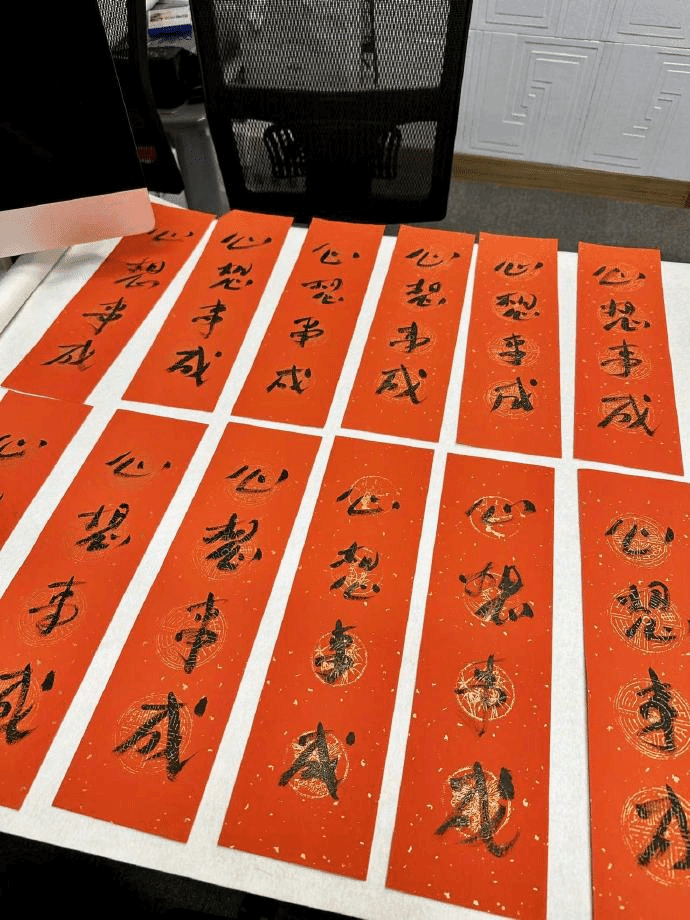 心想事成
心想事成
心想事成
心想事成
心想事成
心想事成
心
心想事成
心想事成
心想事成
心想事成
心想事成